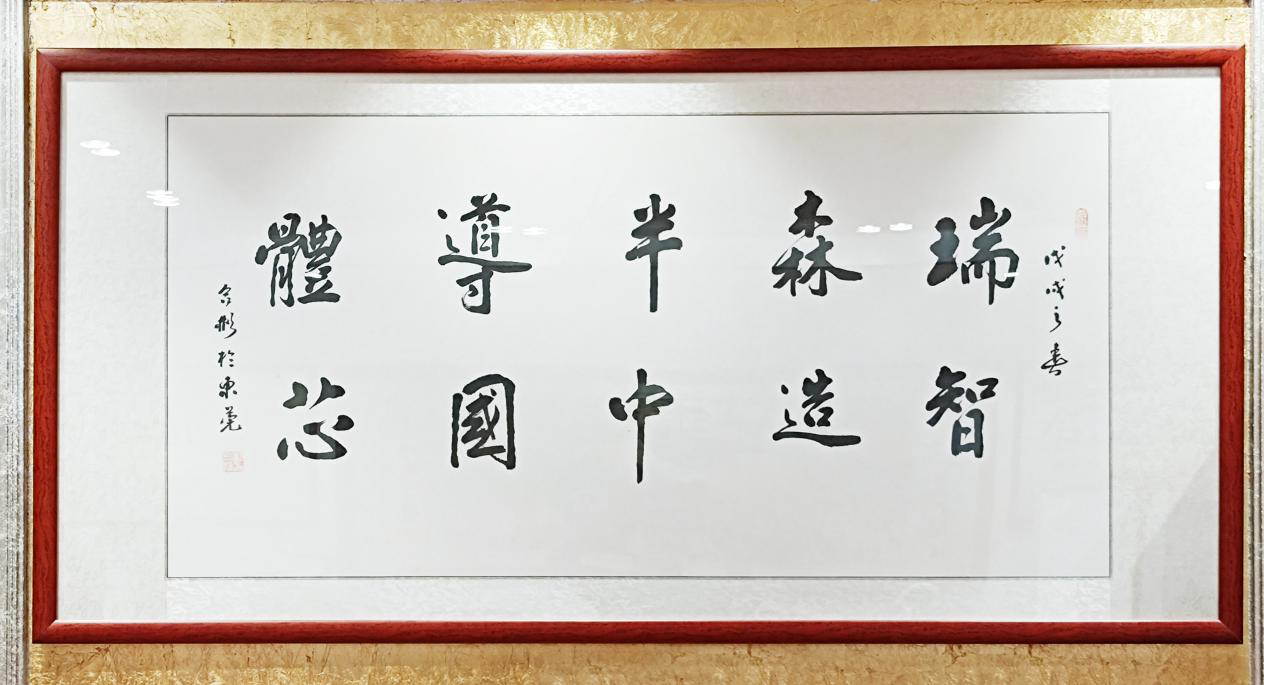 戊戌之春
瑞森半導體
智造中國芯
於東莞